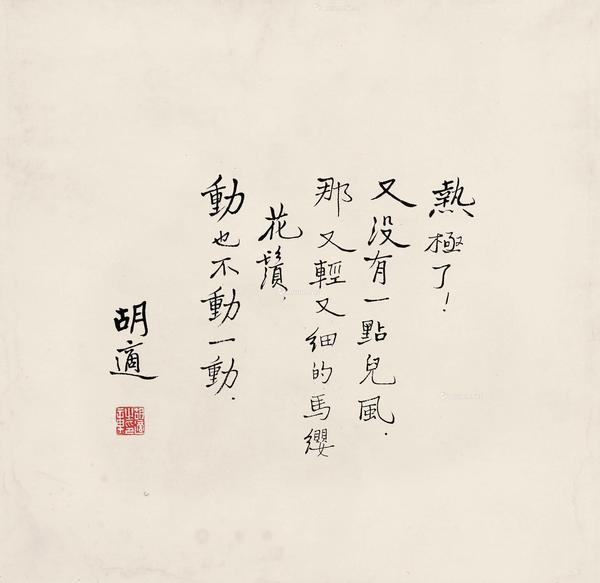 熱極了！
又没有一點兒風．
那又輕又細的馬纓
花鬚，
動也不動一動．
胡適